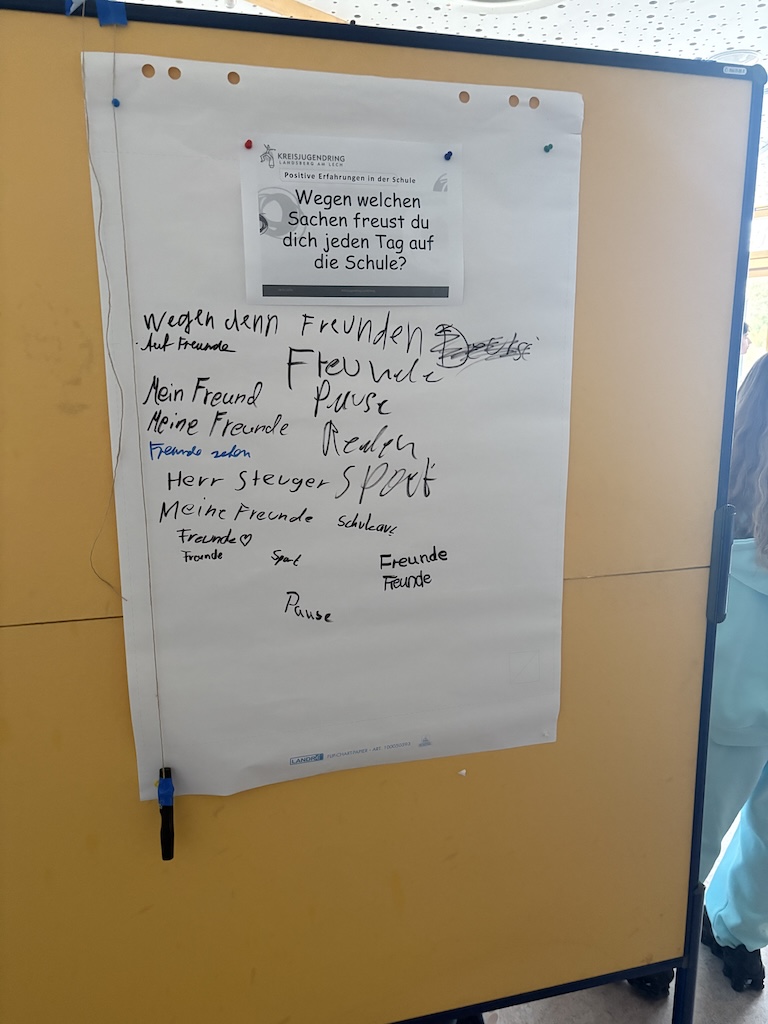 KREISJUGENDRING
LANDSBERG AM LECH
Positive Erfahrungen in der Schule
Wegen welchen
Sachen freust du
dich jeden Tag auf
die Schule?
Wegen denn Freunden
Auf Freunde
Freunde
Mein Freund
Pause
Meine Freunde
Freunde sehen
Herr Steuger Sport
Meine Freunde
Schulcafé
Freunde♡
Freunde
Sport
Freunde
Freunde
Pause
LANDRÉ FLIPCHARTPAPIER · ART.